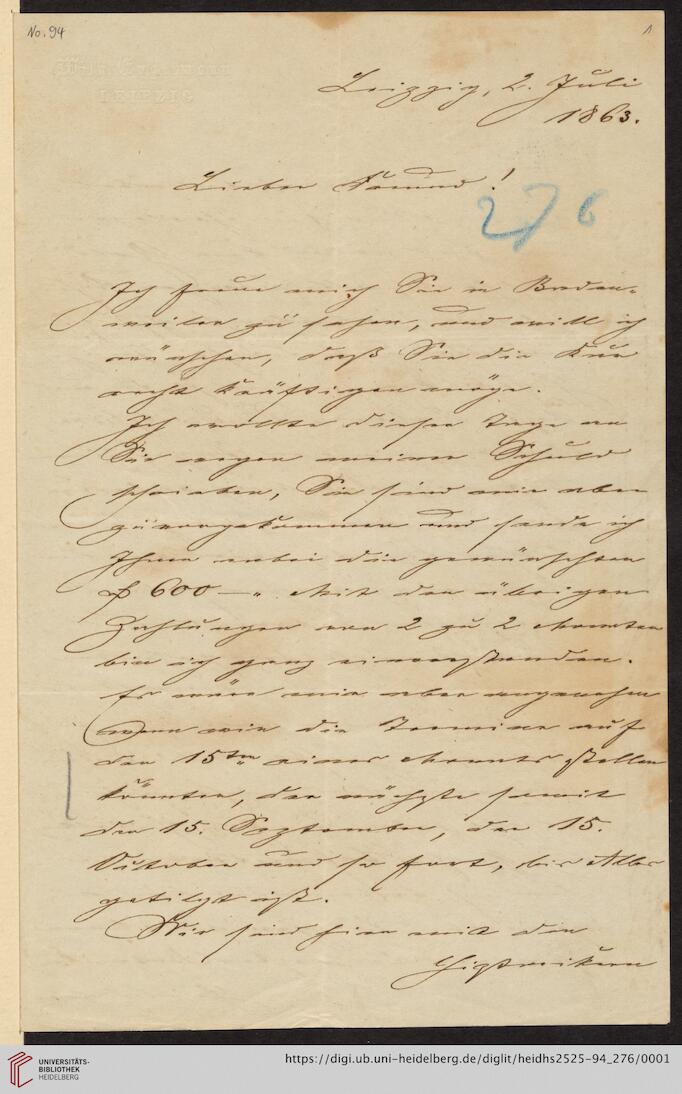 No. 94
1
LEIPZIG
Leipzig, 2. Juli
1863.
Lieber Freund!
276
Ich freue mich Sie in Baden-
weiler zu sehen, und will ich
wünschen, daß Sie die Kur
recht kräftigen möge.
Ich wollte dieser Tage an
Sie wegen meiner Schuld
schreiben, Sie sind mir aber
zuvorgekommen und sende ich
Ihnen anbei die gewünschten
f 600 —„. Mit den übrigen
Zahlungen von 2 zu 2 Monaten
bin ich ganz einverstanden.
Es wäre mir aber angenehm
wenn wir die Termine auf
den 15ten eines Monats stellen
könnten, der nächste somit
den 15. September, der 15.
October und so fort, bis Alles
getilgt ist.
Wir sind hier mit den
UNIVERSITÄTS-
BIBLIOTHEK
HEIDELBERG
https://digi.ub.uni-heidelberg.de/diglit/heidhs2525-94_276/0001